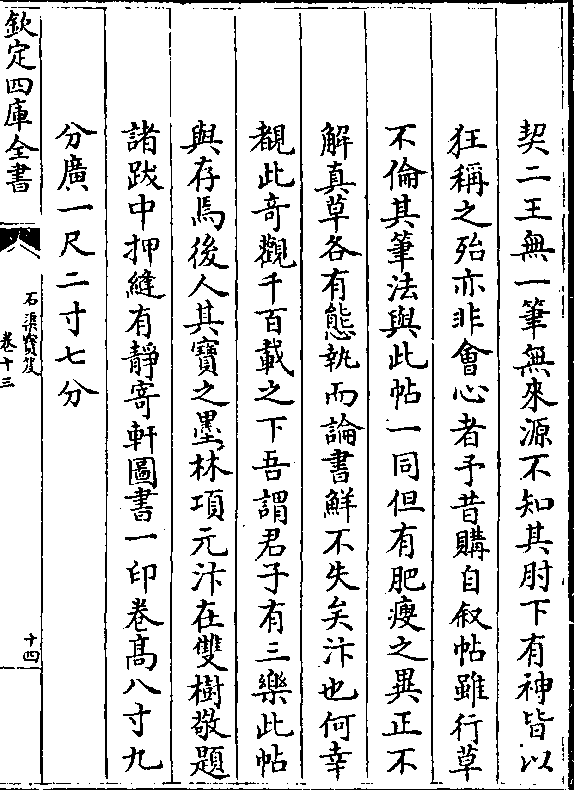 契二王無一筆無來源不知其肘下有神皆以
狂稱之殆亦非會心者予昔購自叙帖雖行草
不倫其筆法與此帖一同但有肥瘦之異正不
解真草各有態執而論書鮮不失矣汴也何幸
覩此奇觀千百載之下吾謂君子有三樂此帖
與存焉後人其寶之墨林項元汴在雙樹敬題
諸跋中押縫有靜寄軒圖書一印卷髙八寸九
分廣一尺二寸七分
欽定四庫全書
石渠寳笈
卷十三
十四